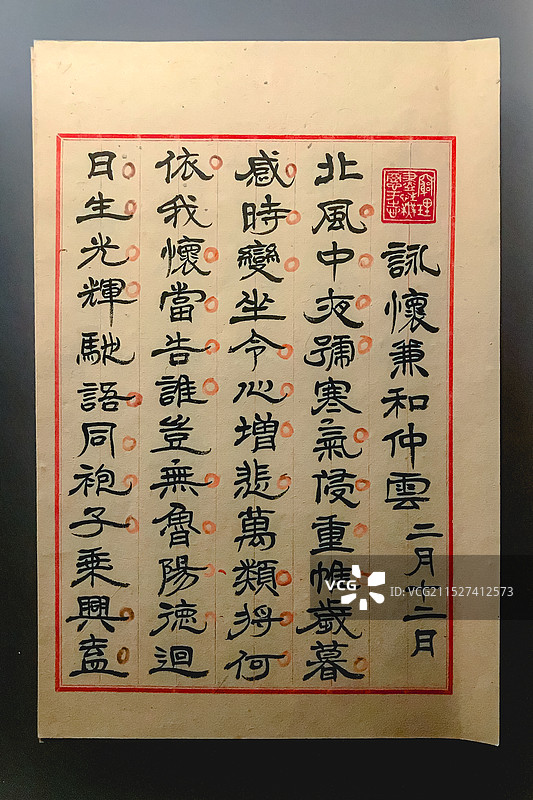 詠懷兼和仲雲 二月十二日
北風中夜號寒氣侵重帷歲暮
感時變坐令心增悲萬類將何
依我懷當告誰豈無魯陽德迴
日生光輝馳語同袍子乘興盍
VCG
ID:VCG211527412573